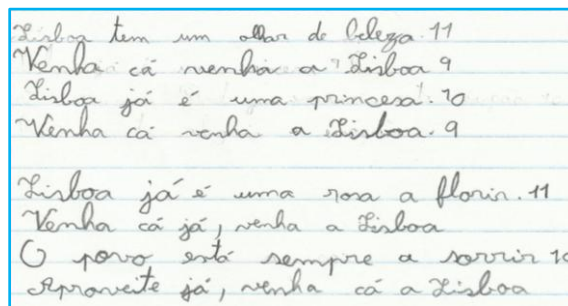 Lisboa tem um olhar de beleza. 11
Venha cá venha a Lisboa 9
Lisboa já é uma princesa. 10
Venha cá venha a Lisboa. 9
Lisboa já é uma rosa a florir. 11
Venha cá já, venha a Lisboa
O povo está sempre a sorrir 10
Aproveite já, venha cá a Lisboa